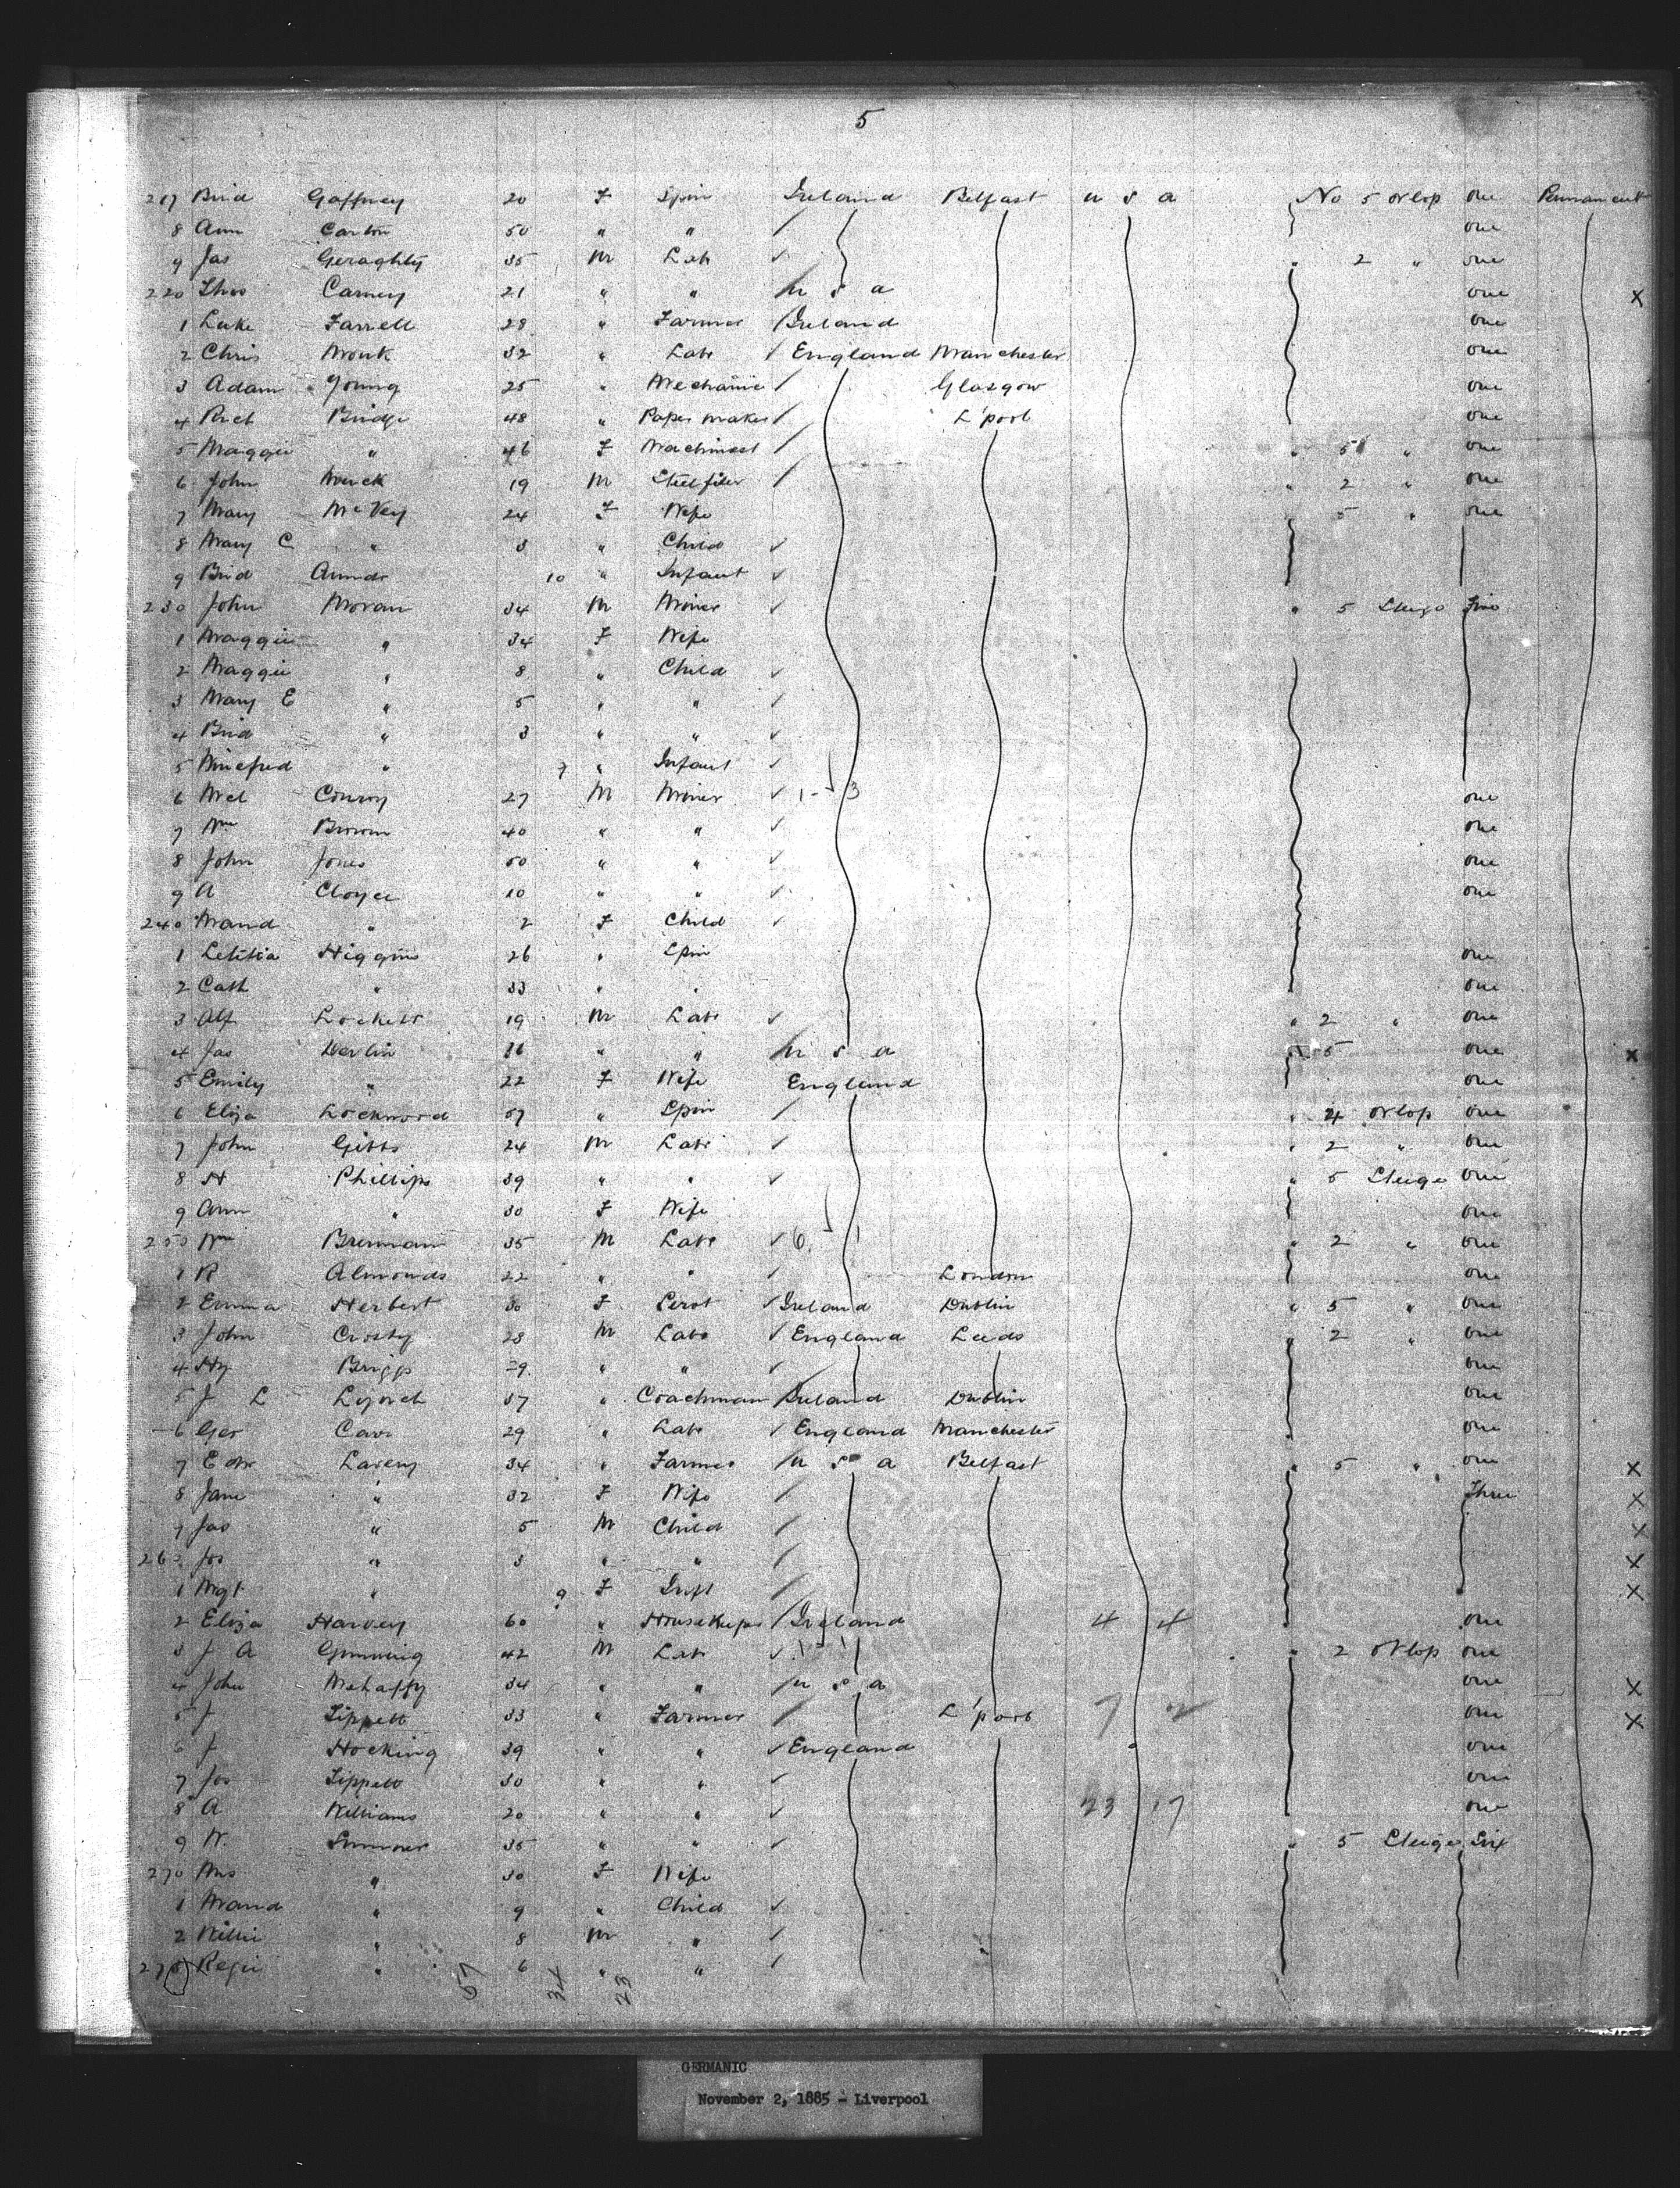 5
217 Brid Gaffney 20 F Spin Ireland Belfast U S A No 5 Orlop one Permanent
8 Ann Carton 50 " " / one
9 Jas Geraghty 35 M Lab ✓ " 2 " one
220 Thos Carney 21 " " / U S A one X
1 Luke Farrell 28 " Farmer / Ireland one
2 Chris Monk 32 " Labr / England Manchester one
3 Adam Young 25 " Mechanic / Glasgow one
4 Rich Bridge 48 " Paper maker / L'pool one
5 Maggie " 46 F Machinest / " 5 " one
6 John 19 M / " 2 " one
7 Mary McVey 24 F Wife " 5 " one
8 Mary C " 3 " Child ✓
9 Brid 10 " Infant ✓
230 John Moran 34 M Miner ✓ " 5 Steige Five
1 Maggie " 34 F Wife
2 Maggie " 8 " Child ✓
3 Mary E " 5 " " ✓
4 Brid " 3 " " ✓
5 Winefred " 7 " Infant ✓
6 Mcl Conroy 27 M Miner ✓ 1 - 3 one
7 Wm Brown 40 " " ✓ one
8 John Jones 50 " " ✓ one
9 A Cloyce 10 " " ✓ one
240 Maud " 2 F Child ✓
1 Letitia Higgins 26 " Spin one
2 Cath " 33 " " one
3 Alf Lockett 19 M Labr ✓ " 2 " one
4 Jas Devlin 36 " " / U S A 5 one X
5 Emily " 22 F Wife England one
6 Eliza Lockwood 57 " Spin / " 4 Orlop one
7 John Gibbs 24 M Labr ✓ " 2 " one
8 H Phillips 39 " " ✓ " 5 Steige one
9 Ann " 30 F Wife one
250 Wm Brennan 35 M Labr ✓ 6 1 " 2 " one
1 R Almonds 22 " " ✓ London one
2 Emma Herbert 30 F Servt ✓ Ireland Dublin " 5 " one
3 John Crosby 28 M Labr ✓ England Leeds " 2 " one
4 Hy Briggs 29 " " ✓ one
5 J L Lynch 37 " Coachman / Ireland Dublin one
6 Geo Cave 29 " Labr / England Manchester one
7 Edw Lavery 34 " Farmer / U S A Belfast " 5 " one X
8 Jane " 32 F Wife / Three X
9 Jas " 5 M Child / X
260 Jos " 3 " " / X
1 Mgt " 9 F Inft / X
2 Eliza Harvey 60 " Housekeepr / Ireland 4 4 one
3 J A 42 M Labr ✓ " 2 Orlop one
4 John Mehaffy 34 " " / U S A one X
5 J Tippett 33 " Farmer / L'pool 7 2 one X
6 J Hocking 39 " " ✓ England one
7 Jos Tippett 30 " " ✓ one
8 A Williams 20 " " ✓ 23 17 one
9 W. Sumner 35 " " ✓ " 5 Steige Six
270 Mrs " 30 F Wife
1 Maud " 9 " Child ✓
2 Willie " 8 M " ✓
273 " 6 " " ✓
57 34 23
GERMANIC
November 2, 1885 - Liverpool